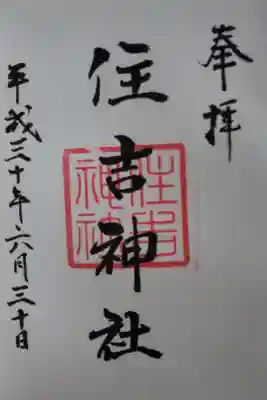 奉拝
住吉神社
住吉神社
平成三十年六月三十日